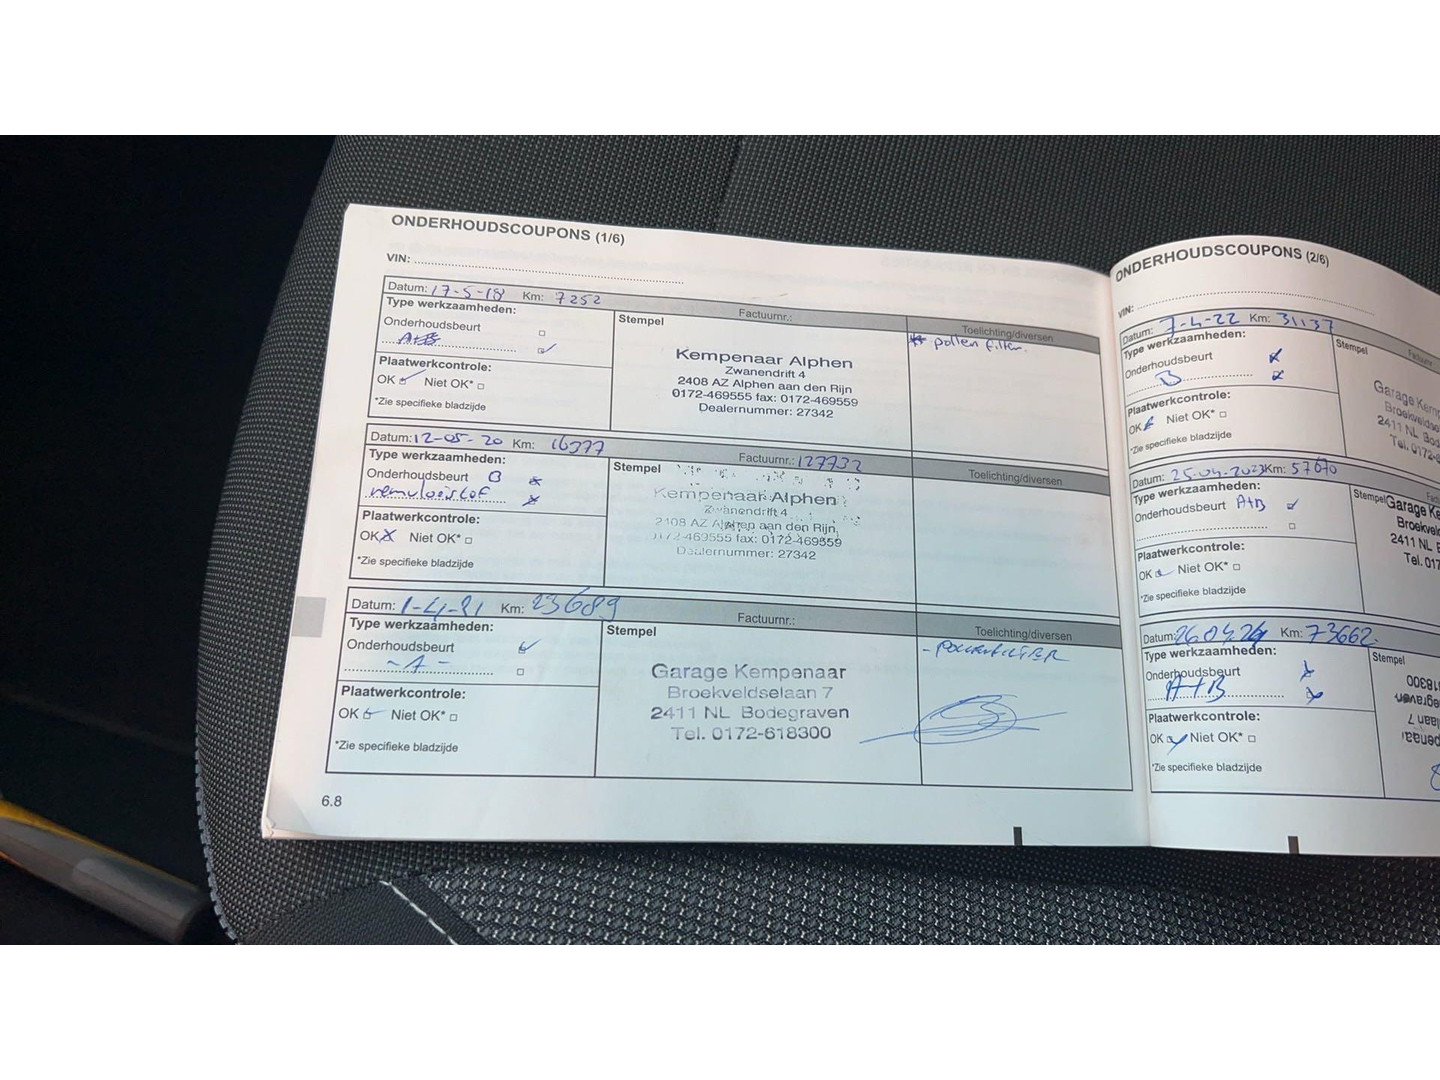 ONDERHOUDSCOUPONS (1/6)
VIN:
Datum: 17-5-18 Km: 7252
Type werkzaamheden:
Onderhoudsbeurt
A+B
Plaatwerkcontrole:
OK Niet OK*
*Zie specifieke bladzijde
Factuurnr.:
Stempel
Kempenaar Alphen
Zwanendrift 4
2408 AZ Alphen aan den Rijn
0172-469555 fax: 0172-469559
Dealernummer: 27342
Toelichting/diversen
* pollen filter.
Datum: 12-05-20 Km: 16377
Type werkzaamheden:
Onderhoudsbeurt B
remvloeistof
Plaatwerkcontrole:
OK Niet OK*
*Zie specifieke bladzijde
Factuurnr.: 127732
Stempel
Kempenaar Alphen
Zwanendrift 4
2408 AZ Alphen aan den Rijn
0172-469555 fax: 0172-469559
Dealernummer: 27342
Toelichting/diversen
Datum: 1-4-21 Km: 23689
Type werkzaamheden:
Onderhoudsbeurt
- A -
Plaatwerkcontrole:
OK Niet OK*
*Zie specifieke bladzijde
Factuurnr.:
Stempel
Garage Kempenaar
Broekveldselaan 7
2411 NL Bodegraven
Tel. 0172-618300
Toelichting/diversen
- POLLENFILTER
6.8
ONDERHOUDSCOUPONS (2/6)
VIN:
Datum: 7-4-22 Km: 31137
Type werkzaamheden:
Onderhoudsbeurt
B
Plaatwerkcontrole:
OK Niet OK*
*Zie specifieke bladzijde
Stempel
Garage Kemp
Broekveldse
2411 NL Bod
Tel. 0172-6
Datum: 25-04-2023 Km: 57070
Type werkzaamheden:
Onderhoudsbeurt A+B
Plaatwerkcontrole:
OK Niet OK*
*Zie specifieke bladzijde
Stempel
Garage Ke
Broekvel
2411 NL
Tel. 017
Datum: 260424 Km: 73662.
Type werkzaamheden:
Onderhoudsbeurt
A+B
Plaatwerkcontrole:
OK Niet OK*
*Zie specifieke bladzijde
Stempel